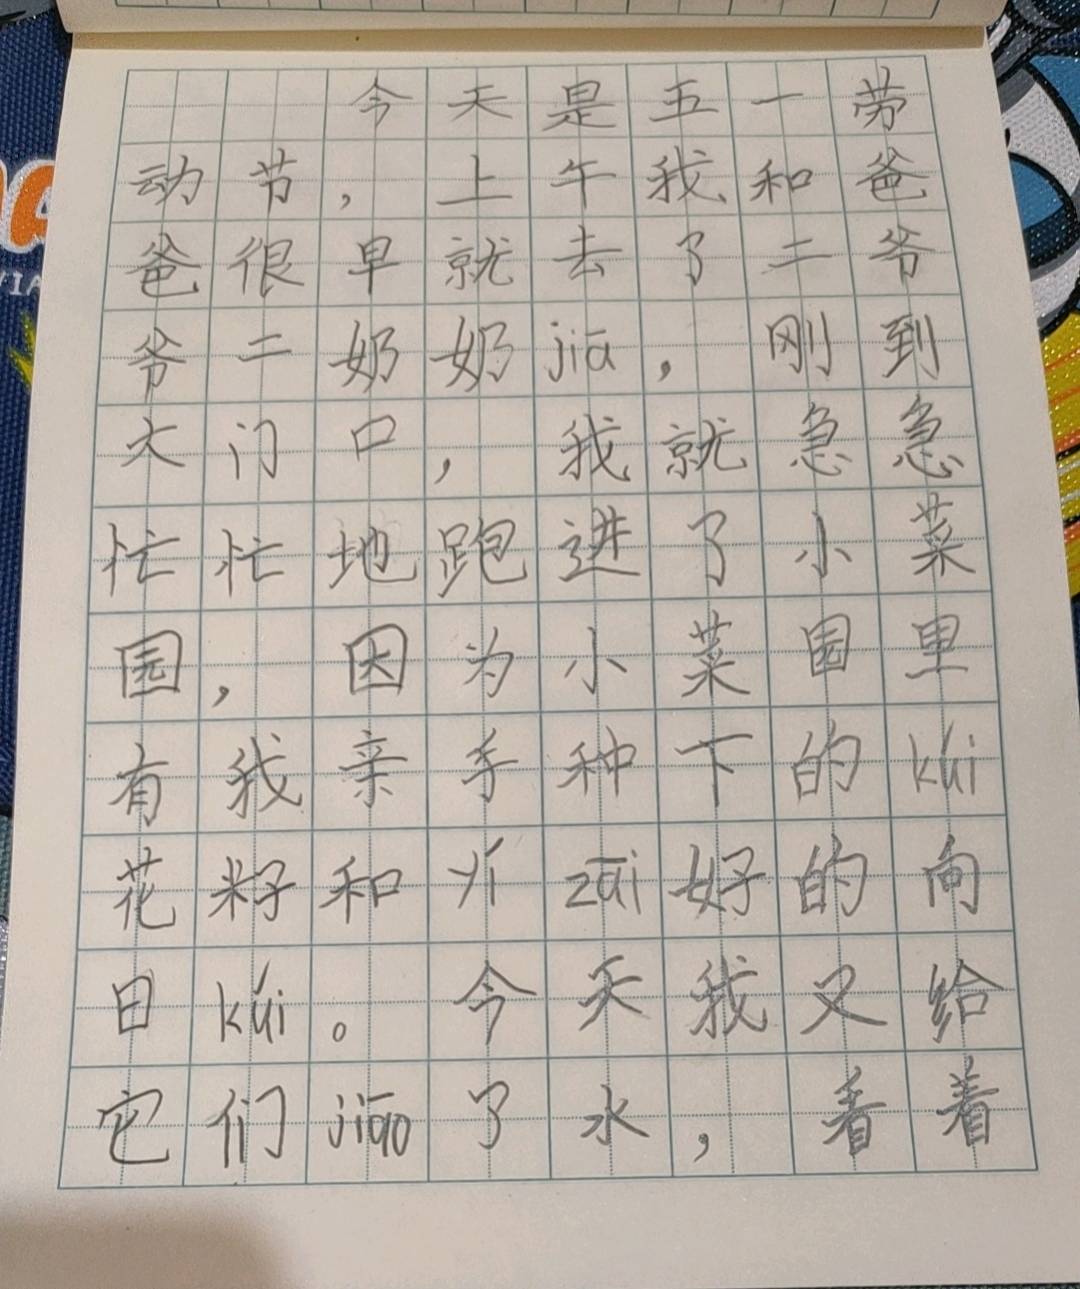 今天是五一劳
动节，上午我和爸
爸很早就去了二爷
爷二奶奶jiā，刚到
大门口，我就急急
忙忙地跑进了小菜
园，因为小菜园里
有我亲手种下的kuí
花籽和zāi好的向
日kuí。今天我又给
它们jiāo了水，看着